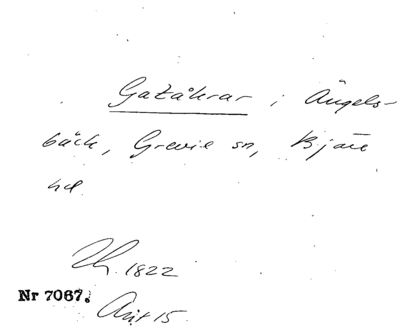 Gatåkrar i Ängels-
bäck, Grevie sn, Bjäre
hd
1822
Nr 7067.
Akt 15